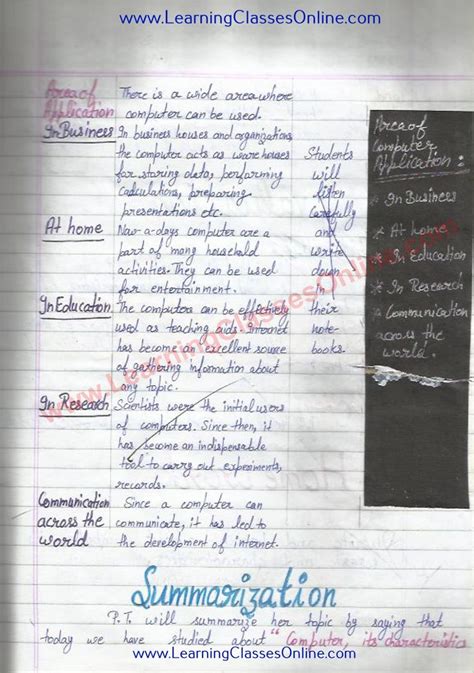 www.LearningClassesOnline.com
Area of
Application
There is a wide area where
computer can be used.
In Business
In business houses and organizations
the computer acts as ware houses
for storing data, performing
Cadculations, preparing
presentations etc.
At home
Now-a-days computer are a
part of many household
activities. They can be used
for entertainment.
In Education
The computers can be effectively
used as teaching aids. Internet
has become an excellent source
of gathering information about
any topic.
In Research
Scientists were the initial users
of computers. Since then, it
has become an indispensable
tool to carry out experiments,
records.
Communication
across the
world
Since a computer can
communicate, it has led to
the development of internet.
Students
will
listen
carefully
and
write
down
in
their
note-
books.
Area of
Computer
Application:
* In Business
* At home
* In Education
* In Research
* Communication
across the
world.
www.LearningClassesOnline.com
Summarization
P.T. will summarize her topic by saying that
today we have studied about "Computer, its characteristics
www.LearningClassesOnline.com